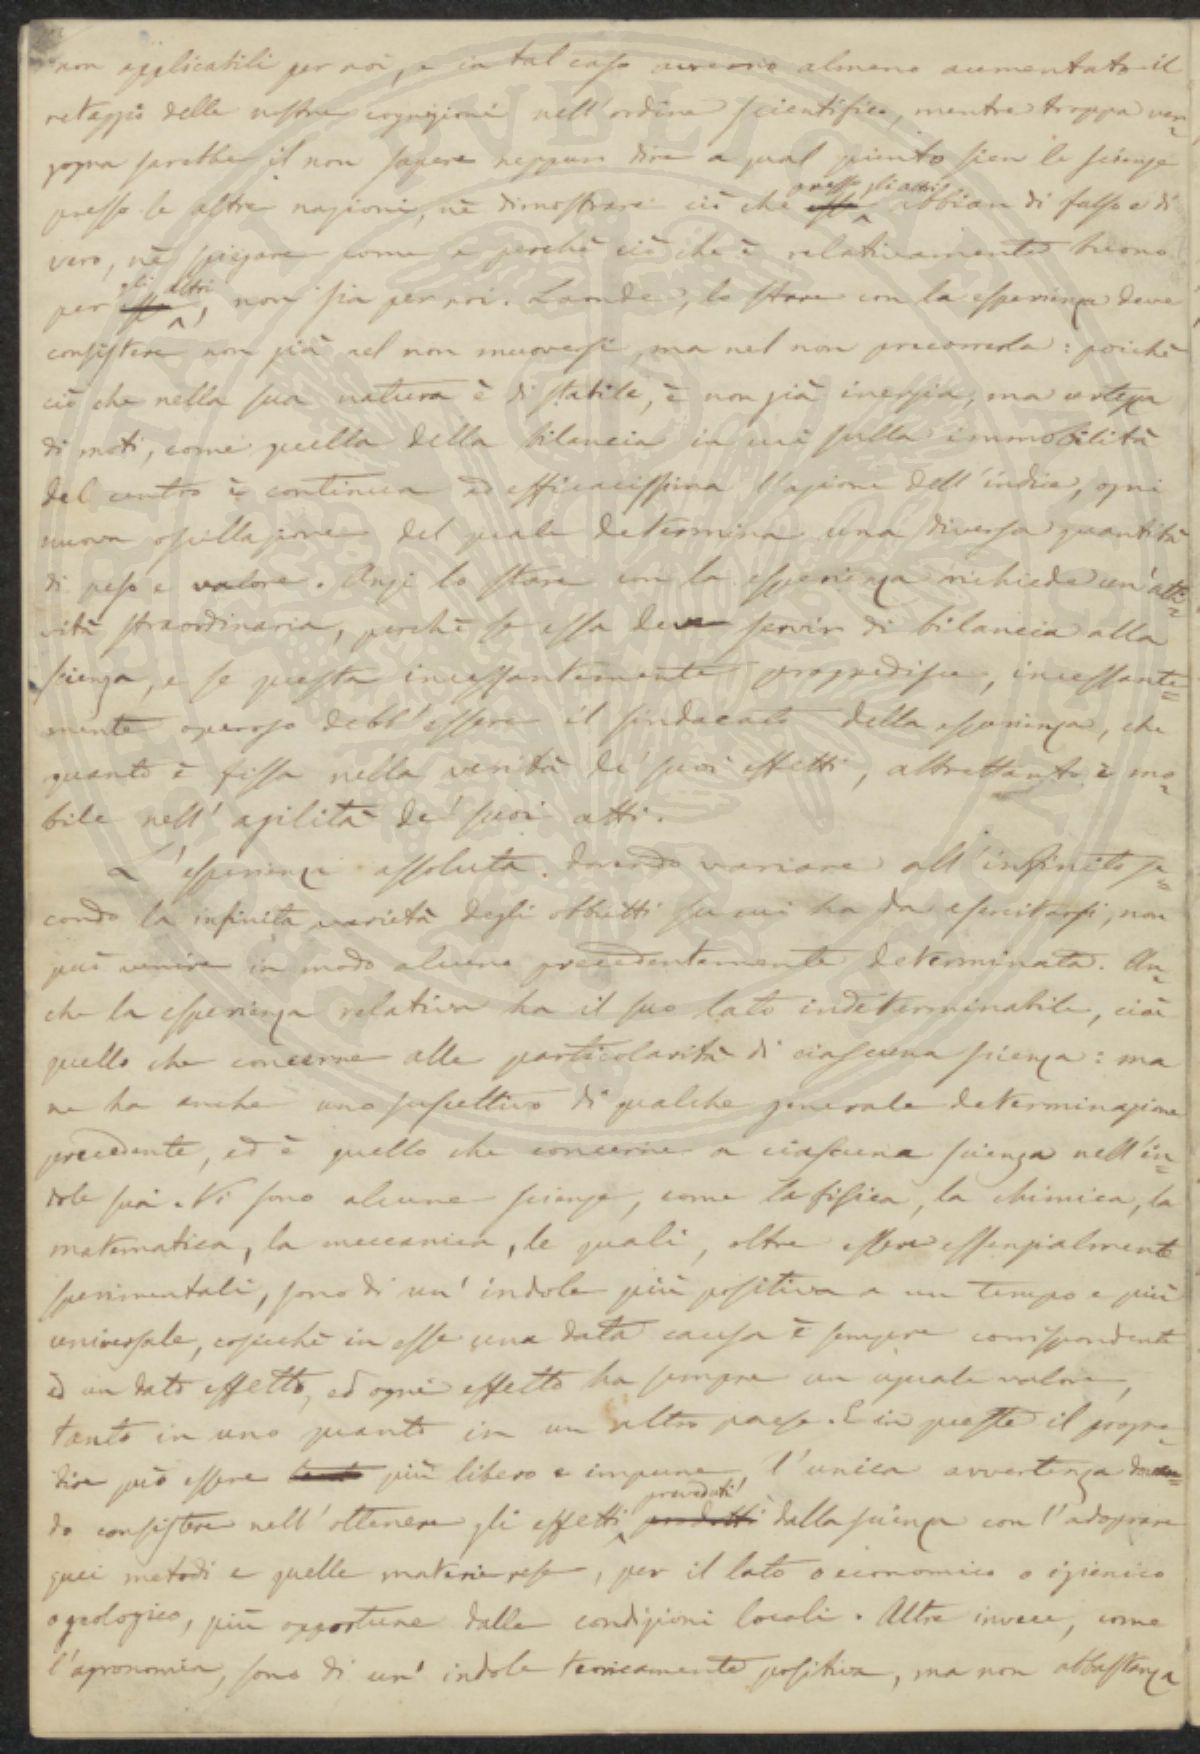 non applicabili per noi, e in tal caso avremo almeno aumentato il
retaggio delle nostre cognizioni nell'ordine scientifico, mentre troppa ver=
gogna sarebbe il non sapere neppure dire a qual punto sien le scienze
presso le altre nazioni, nè dimostrare ciò che presso gli altri abbian di falso e di
vero, nè spiegare come e perchè ciò che è relativamente buono
per gli altri, non sia per noi. Laonde, lo stare con la esperienza deve
consistere non già nel non muoversi, ma nel non precorrerla: poichè
ciò che nella sua natura è di stabile, è non già inerzia, ma certezza
di moti, come quella della bilancia in cui sulla immobilità
del centro è continua ed efficacissima l'azione dell'indice, ogni
nuova oscillazione del quale determina una diversa quantità
di peso e valore. Anzi lo stare con la esperienza richiede un'atti=
vità straordinaria, perchè se essa deve servir di bilancia alla
scienza, e se questa incessantemente progredisce, incessante=
mente operoso debb'essere il sindacato della esperienza, che
quanto è fissa nella verità de' suoi effetti, altrettanto è mo=
bile nell'agilità de' suoi atti.
L'esperienza assoluta dovendo variare all'infinito se=
condo la infinita varietà degli obbietti su cui ha da esercitarsi, non
può venire in modo alcuno precedentemente determinata. An=
che la esperienza relativa ha il suo lato indeterminabile, cioè
quello che concerne alle particolarità di ciascuna scienza: ma
ne ha anche uno suscettivo di qualche generale determinazione
precedente, ed è quello che concerne a ciascuna scienza nell'in=
dole sua. Vi sono alcune scienze, come la fisica, la chimica, la
matematica, la meccanica, le quali, oltre essere essenzialmente
sperimentali, sono di un' indole più positiva a un tempo e più
universale, cosicchè in esse una data causa è sempre corrispondente
ad un dato effetto, ed ogni effetto ha sempre un uguale valore,
tanto in uno quanto in un altro paese. E in queste il progre=
dire può essere più libero e impune, l'unica avvertenza doven=
do consistere nell'ottenere gli effetti preveduti dalla scienza con l'adoprare
quei metodi e quelle materie rese, per il lato o economico o igienico
o geologico, più opportune dalle condizioni locali. Altre invece, come
l'agronomia, sono di un' indole teoricamente positiva, ma non abbastanza